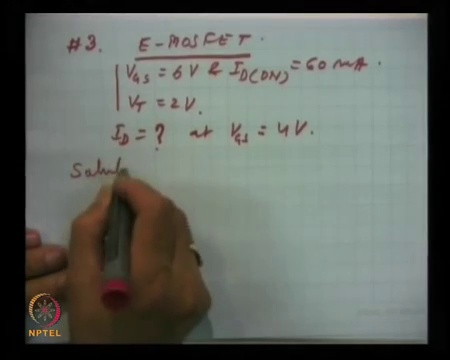 #3. E-MOSFET.
V_GS = 6 V & I_D(ON) = 60 mA.
V_T = 2 V.
I_D = ? at V_GS = 4 V.
Solut
NPTEL